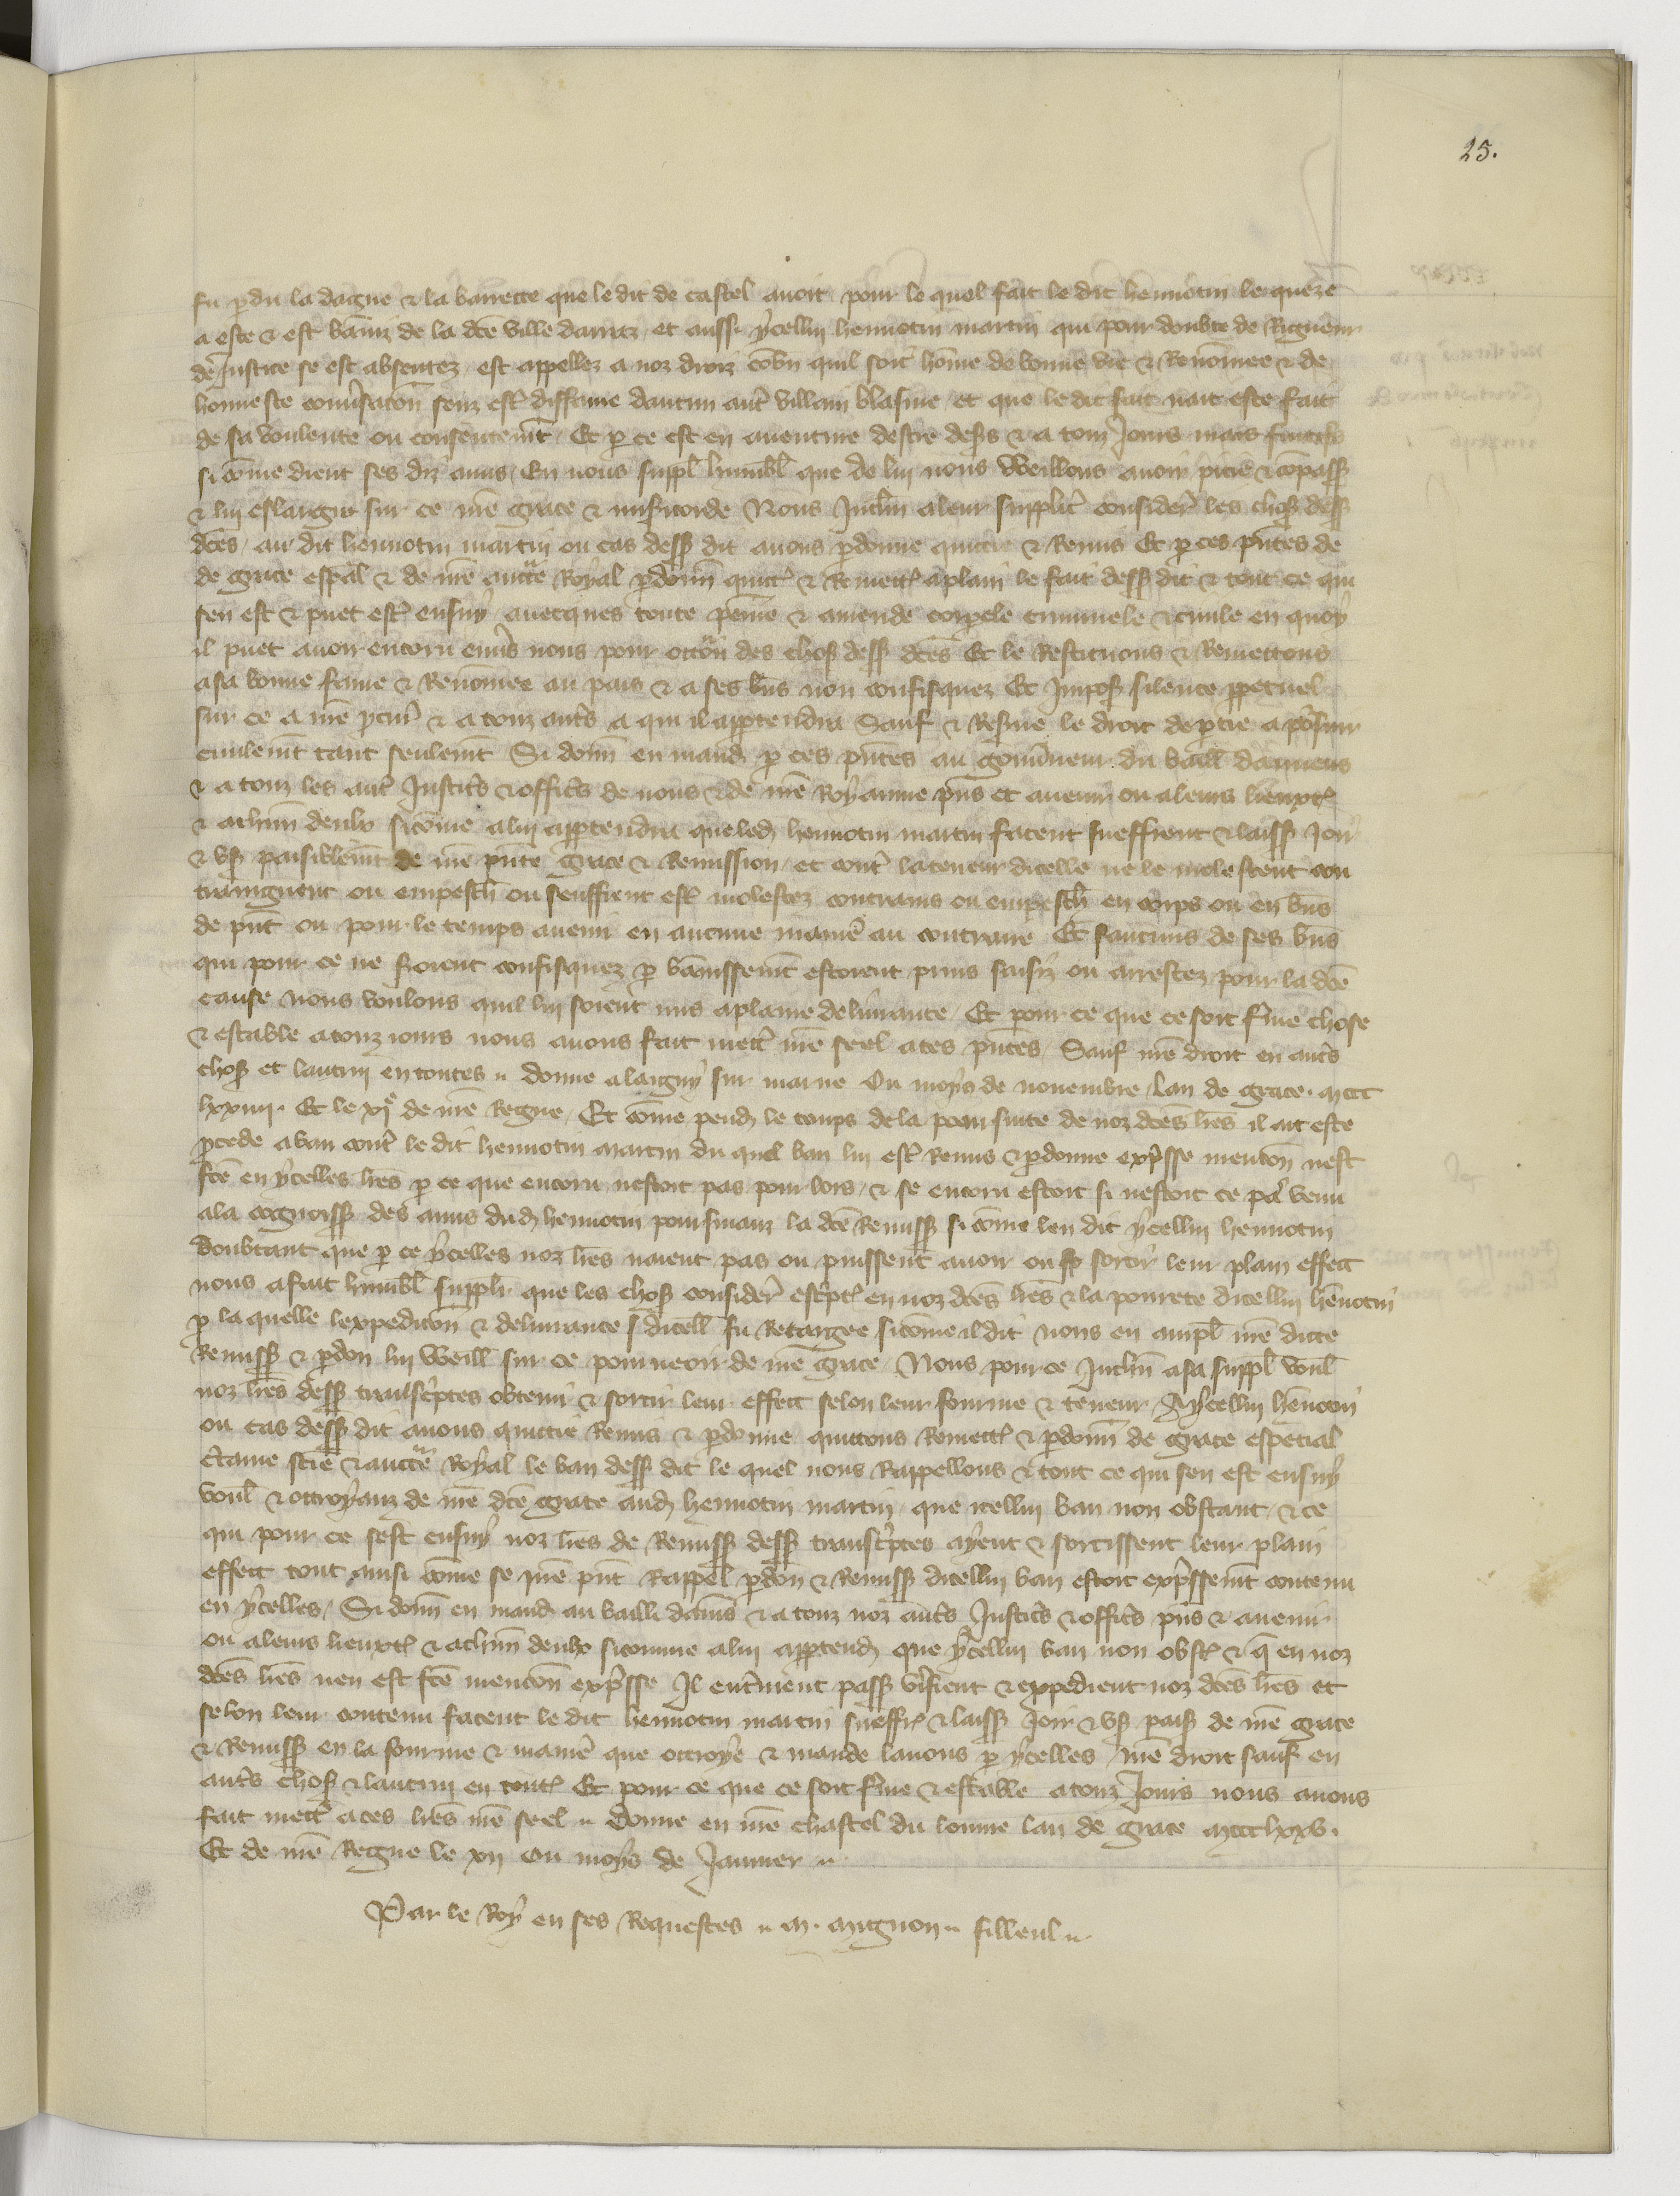 25.
fu pdu la dague & la barrette que le dit de castel avoit pour le quel fait le dit hennotin le
a este & est banniz de la dce ville darraz et aussi ycellui hennotin martin qui pour doubte de Rigueur
de Justice se est absentez est appellez a noz droiz cobn quil soit home de bonne vie & Renomee & de
honneste convsacon senz estr diffame daucun autr villain blasme et que le dit fait nait este fait
de sa voulente ou consentemt Et p ce est en aventure destre & a touz Jours mais
si come dient ses diz amis En nous suppl humbl que de lui nous Weillons avoir pitie & compass
& lui eslargir sur ce nre grace & misicorde Nous Inclin a leur supplic considere les chos dess
dces au dit hennotin martin ou cas dess dit avons pdonne quictie & Remis Et p ces pntes de
de grace espal & de nre auctte Royal pdonn quictt & Remett a plain le fait dess dit & tout ce qui
sen est & puet estr ensuy avecques toute peine & amende corpele criminele & civile en quoy
il puet avoir encoru envs nous pour occon des chos dess dces Et le Restituons & Remettons
a sa bonne fame & Renomee au pais & a ses bns non confisquez Et Impos silence ppetuel
sur ce a nre pcur & a touz auts a qui il apptendra Sauf & Resve le droit de ptie a pour
civilemt tant seulemt Si donn en mand p ces pntes au gouvneur du baill damiens
& a touz les autr Justics & offics de nous & de nre Royaume pns et avenir ou a leurs lieuxt
& a chun deulx si come a lui apptendra que led hennotin martin facent sueffrent & laiss Joir
& us paisiblemt de nre pnte grace & Remission et contr la teneur dicelle ne le molestent con
traingnent ou empesch ou seuffrent estr molestez contrains ou empesch en corps ou en bns
de pnt ou pour le temps avenir en aucune maniere au contraire Et saucuns de ses bns
qui pour ce ne soient confisquez p bannissemt estoient prins saisiz ou arrestez pour la dce
cause nous voulons quil lui soient mis a plaine delivrance Et pour ce que ce soit fme chose
& estable a touz jours nous avons fait mettr nre seel a ces pntes Sauf nre droit en auts
chos et lautrui en toutes donne a laigny sur marne Ou moys de novembre Lan de grace mccc
lxxiiii Et le xie de nre Regne Et come pend le temps de la poursuite de noz dces lres il ait este
pcede a ban contr le dit hennotin martin du quel ban lui estr Remis & pdonne expsse mencon nest
fce en ycelles lres p ce que encoru nestoit pas pour lors & se encoru estoit si nestoit ce pas venu
a la cognoiss des amis dud hennotin poursuianz la dce Remiss si come len dit ycellui hennotin
doubtant que p ce ycelles noz lres naient pas ou puissent avoir ou sortir leur plain effect
nous a fait humbl supplir que les chos considere escptes en noz dces lres & la povrete dicellui hennotin
p la quelle lexpedicon & delivrance dicell fu Retargee si come il dit nous en ampl nre dicte
Remiss & pdon lui Weill sur ce pourveoir de nre grace Nous pour ce Inclin a sa suppl voul
noz lres dess transcptes obtenir & sortir leur effect selon leur fourme & teneur A ycellui hennotin
ou cas dess dit avons quictie Remis & pdonne quictons Remett & pdonn de grace especial
ctaine scie & auctte Royal le ban dess dit le quel nous Rappellons & tout ce qui sen est ensuy
voul & ottroyanz de nre dce grace aud hennotin martin que icellui ban non obstant & ce
qui pour ce sest ensuy noz lres de Remiss dess transcptes ayent & sortissent leur plain
effect tout ainsi come se nre pnt Rappel pdon & Remiss dicellui ban estoit expssemt contenu
en ycelles Si donn en mand au bailli damis & a touz noz auts Justics & offics pns & avenir
ou a leurs lieuxt & a chun deulx si comme a lui apptend que ycellui ban non obst & q en noz
dces lres nen est fce mencon expsse Il entrinent pass vifient & expedient noz dces lres et
selon leur contenu facent le dit hennotin martin sueffr & laiss Joir & us pais de nre grace
& Remiss en la fourme & maniere que ottroye & mande lavons p ycelles nre droit sauf en
auts chos & lautrui en tout Et pour ce que ce soit fme & estable a touz Jours nous avons
fait mettr a ces lres nre seel Donne en nre chastel du louvre lan de grace mccclxxv
Et de nre Regne le xii Ou moys de Janvier
Par le Roy en ses Requestes M. Mignon filleul